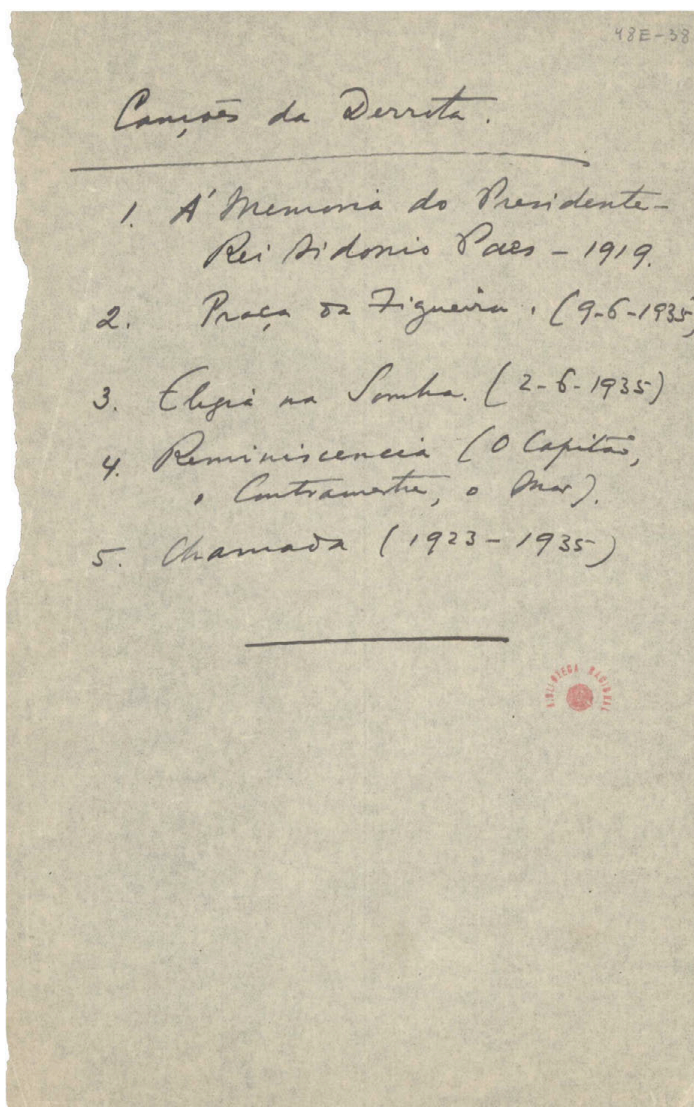 48E-38
Canções da Derrota.
1. A' Memoria do Presidente-
Rei Sidonio Paes – 1919.
2. Praça da Figueira. (9-6-1935)
3. Elegia na Sombra. (2-6-1935)
4. Reminiscencia (O Capitão,
o Contramestre, o Mar).
5. Chamada (1923-1935)
BIBLIOTECA NACIONAL